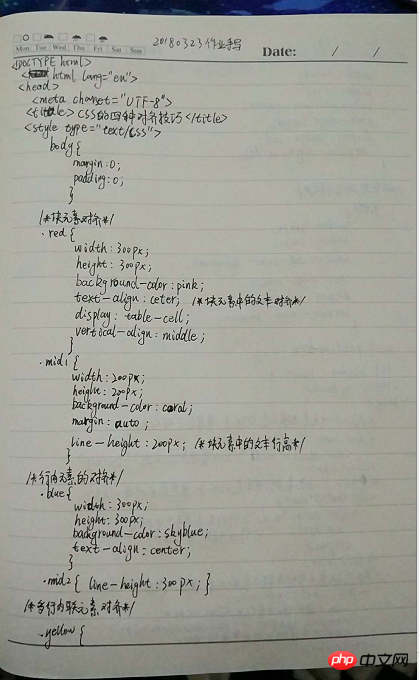 Mon Tue Wed Thu Fri Sat Sun
20180323作业手写
Date: / /
<DOCTYPE html>
< html lang="en">
<head>
<meta charset="UTF-8">
<title>css的四种对齐技巧</title>
<style type="text/css">
body{
margin:0;
padding:0;
}
/*块元素对齐*/
.red{
width:300px;
height:300px;
background-color:pink;
text-align:ceter; /*块元素中的文本对齐*/
display: table-cell;
vertical-align:middle;
}
.mid1{
width:200px;
height:200px;
background-color:coral;
margin:auto;
line-height:200px; /*块元素中的文本行高*/
}
/*行内元素的对齐*/
.blue{
width:300px;
height:300px;
background-color:skyblue;
text-align:center;
}
.mid2{ line-height:300px;}
/*多行内联元素对齐*/
.yellow{
php中文网